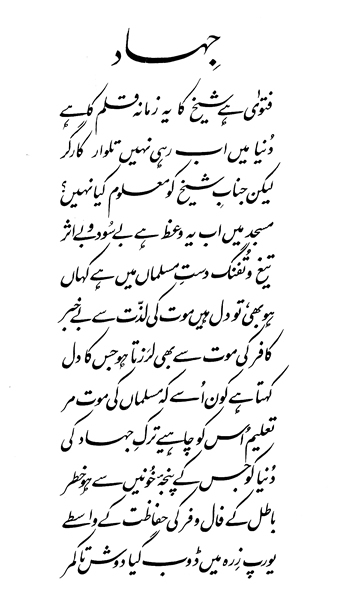 جہاد
فتویٰ ہے شیخ کا یہ زمانہ قلم کا ہے
دُنیا میں اب رہی نہیں تلوار کارگر
لیکن جنابِ شیخ کو معلوم کیا نہیں؟
مسجد میں اب یہ وعظ ہے بے سُود و بے اثر
تیغ و تُفنگ دستِ مسلماں میں ہے کہاں
ہو بھی، تو دل ہیں موت کی لذّت سے بے خبر
کافر کی موت سے بھی لرزتا ہو جس کا دل
کہتا ہے کون اُسے کہ مسلماں کی موت مر
تعلیم اُس کو چاہیے ترکِ جہاد کی
دُنیا کو جس کے پنجۂ خُونیں سے ہو خطر
باطل کے فال و فر کی حفاظت کے واسطے
یورپ زِرہ میں ڈوب گیا دوش تا کمر